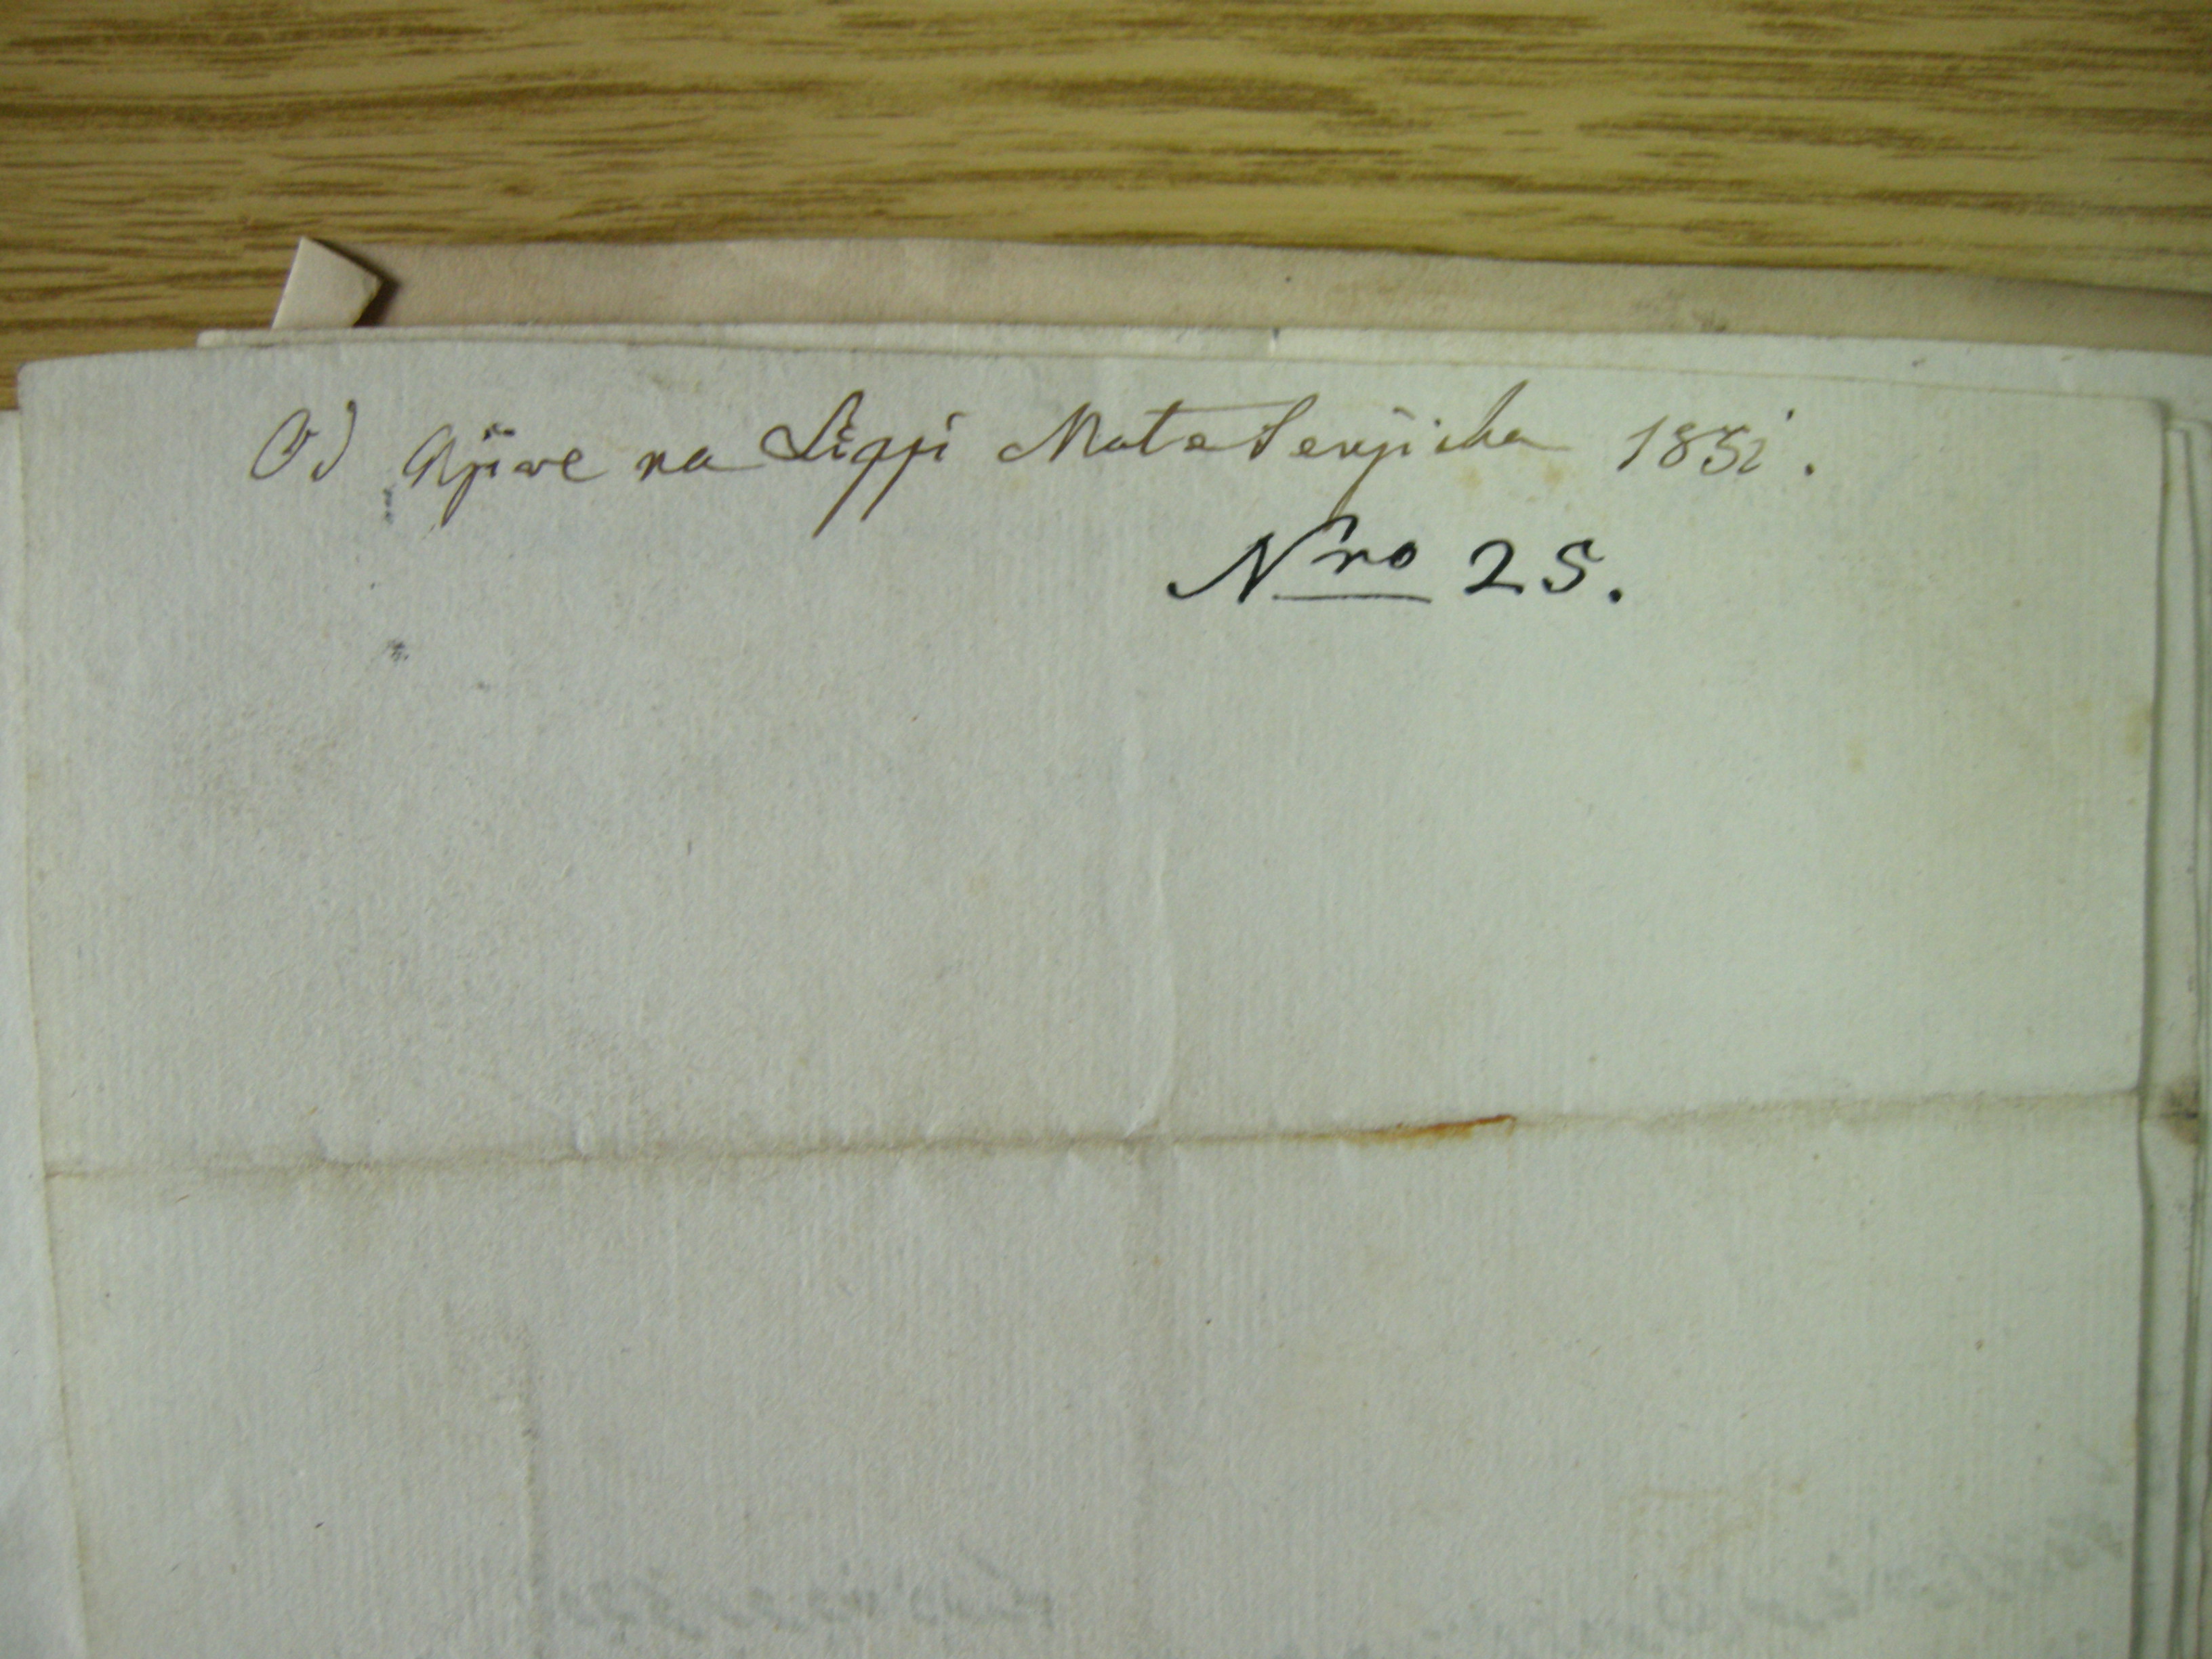 Od Njive na Lippi Mate Senjicha 1851.
Nro 25.